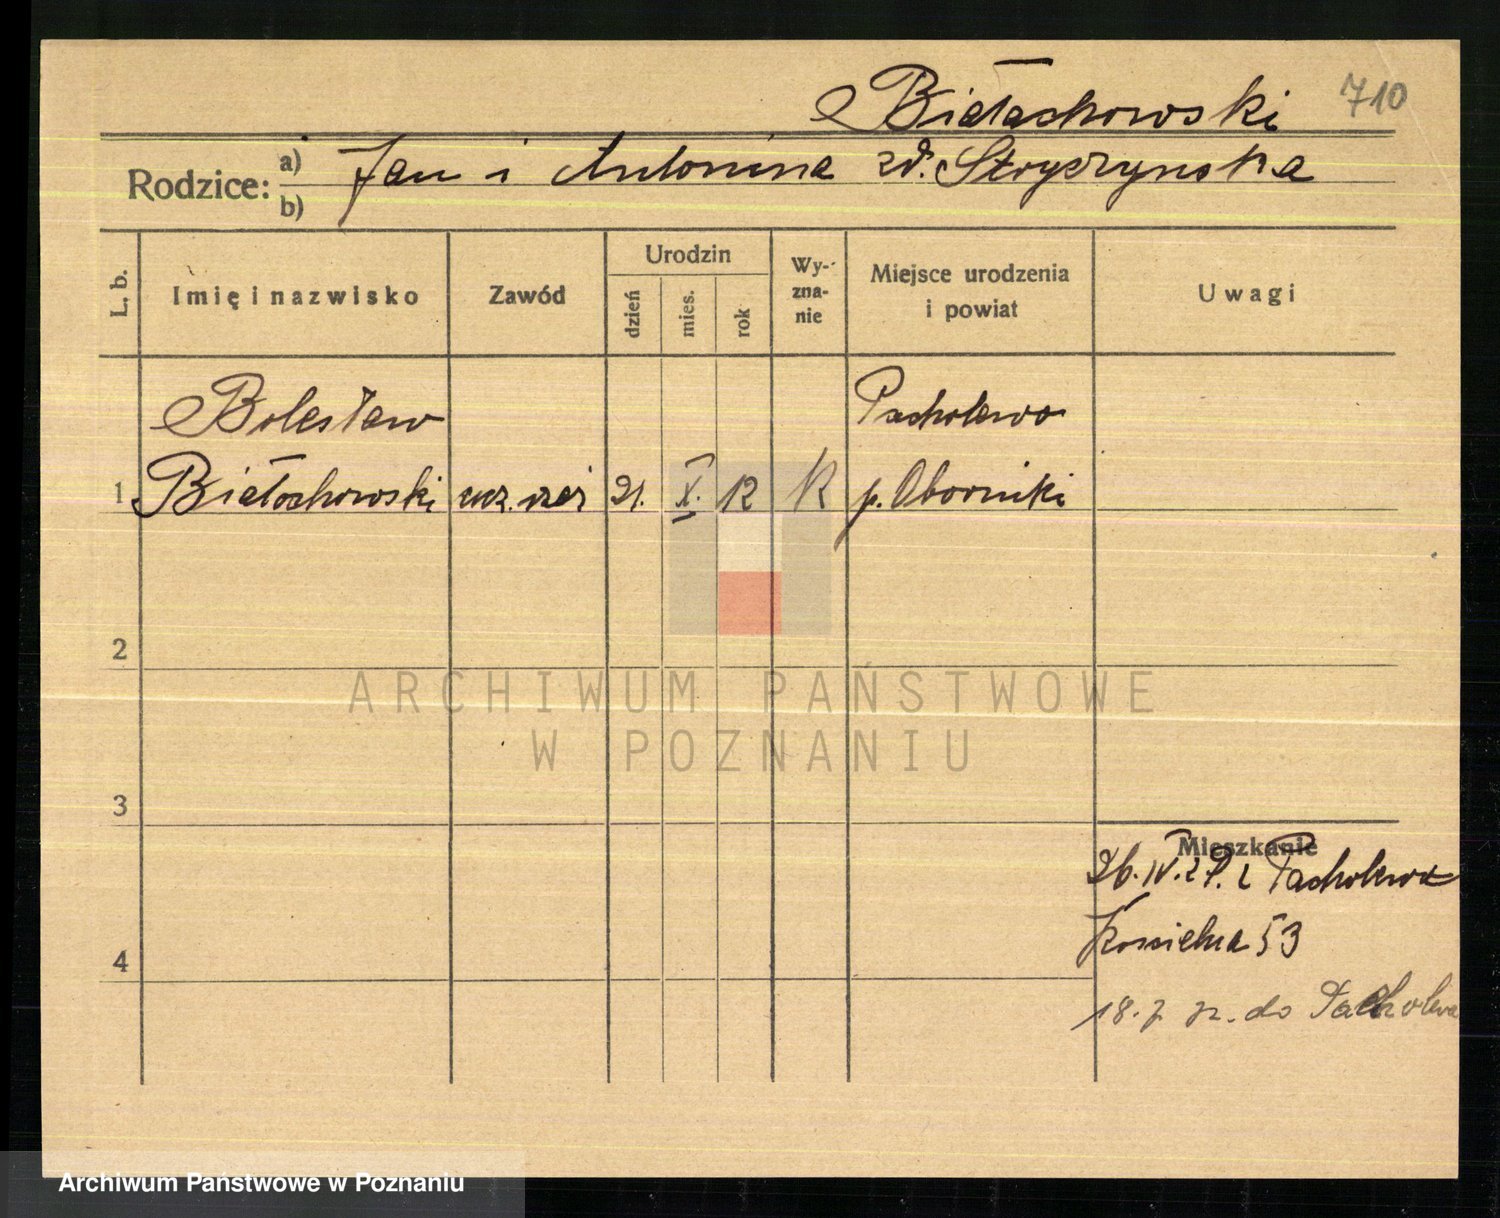 Białachowski 710
Rodzice: a) Jan i Antonina zd. Stryczynska
b)
L. b. Imię i nazwisko Zawód Urodzin dzień mies. rok Wyznanie Miejsce urodzenia i powiat Uwagi
Bolesław Pacholewo
1 Białochowski ucz. rzeź 21. X. 12 K p. Oborniki
2
ARCHIWUM PAŃSTWOWE
W POZNANIU
3
Mieszkanie
26. IV. 29. z Pacholewa
Kościelna 53
4
18. 7 do Pacholewa
Archiwum Państwowe w Poznaniu